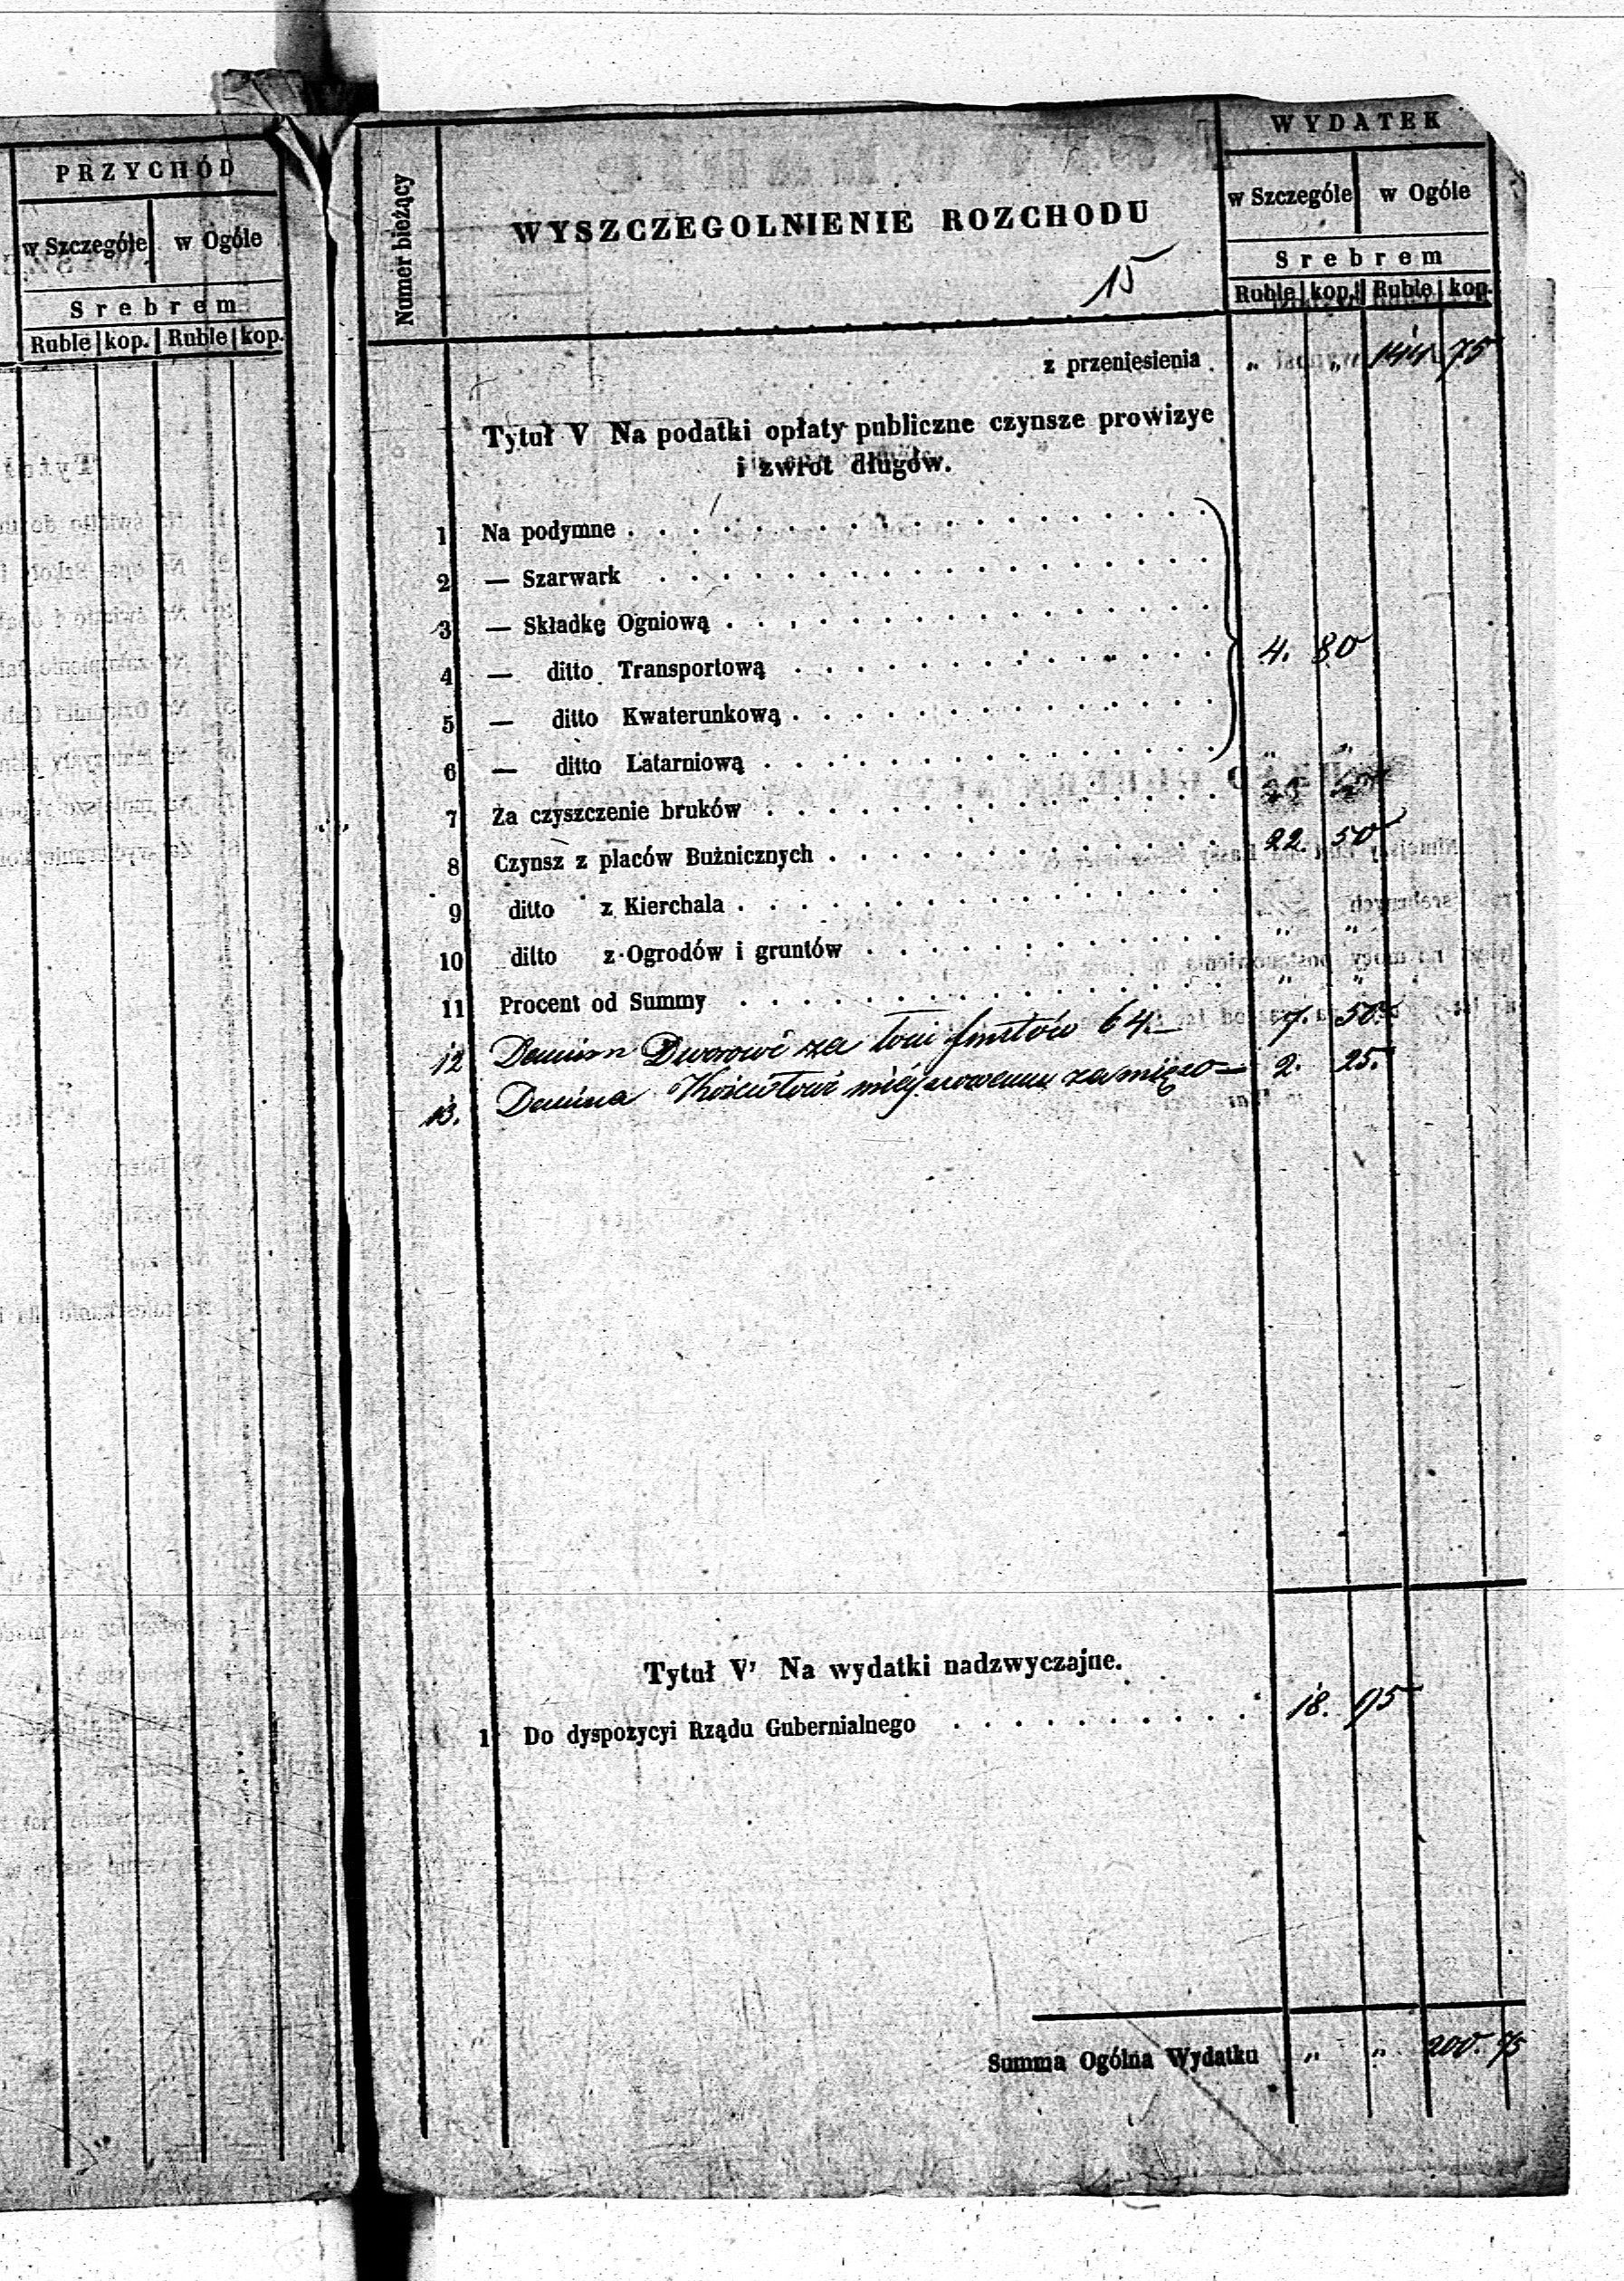 PRZYCHÓD
w Szczególe w Ogóle
Srebrem
Ruble kop. Ruble kop.
Numer bieżący
WYSZCZEGOLNIENIE ROZCHODU
15
WYDATEK
w Szczególe w Ogóle
Srebrem
Ruble kop. Ruble kop.
z przeniesienia „ „ 144. 75
Tytuł V Na podatki opłaty publiczne czynsze prowizye
i zwrot długów.
1 Na podymne
2 — Szarwark
3 — Składkę Ogniową
4 — ditto Transportową 4. 80
5 — ditto Kwaterunkową
6 — ditto Latarniową
7 Za czyszczenie bruków „ „
8 Czynsz z placów Bużnicznych 22. 50
9 ditto z Kierchala
10 ditto z Ogrodów i gruntów „ „
11 Procent od Summy „ „
12 Dworowi za łoiu funtów 64 7. 50
13. Danina Kościołowi miéjscowemu za mięso 2. 25.
Tytuł V' Na wydatki nadzwyczajne.
1 Do dyspozycyi Rządu Gubernialnego 18. 95
Summa Ogólna Wydatku „ „ 200. 75